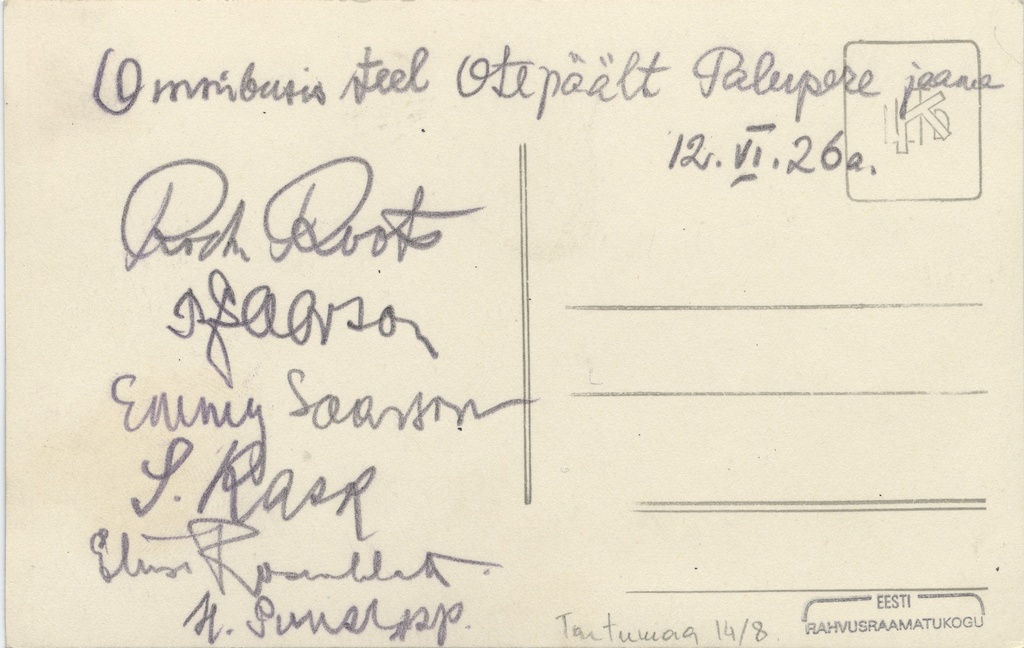 Omnibusis teel Otepäält Palupere jaama
12. VI. 26a.
Rud. Roots
Saarson
Emmy Saarson
S. Kask
Elise Rosenblatt.
H. Punslapp.
Tartumaa 14/8
EESTI
RAHVUSRAAMATUKOGU